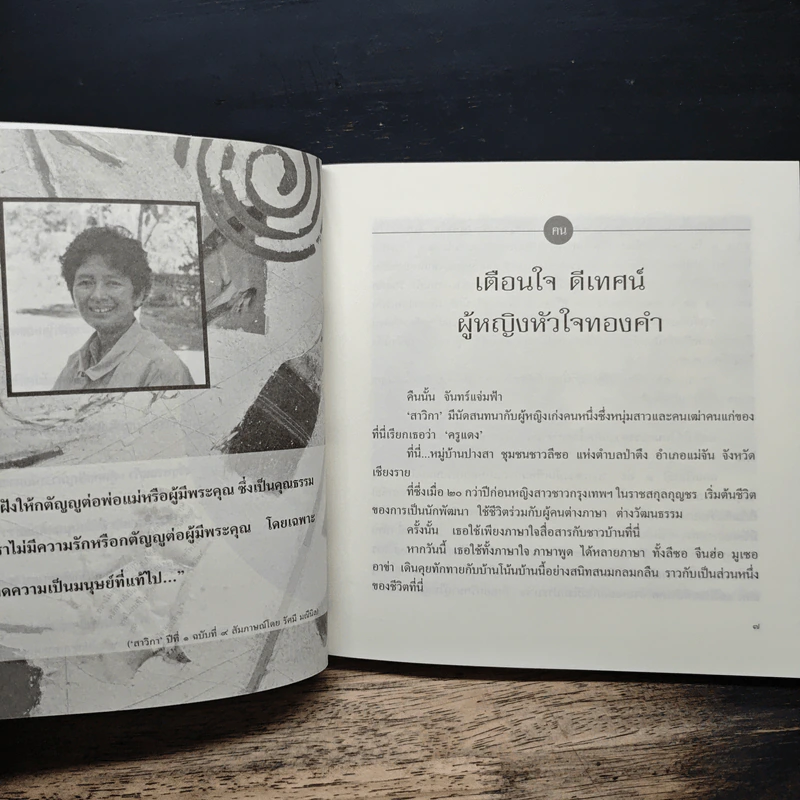 ฝังให้กตัญญูต่อพ่อแม่หรือผู้มีพระคุณ ซึ่งเป็นคุณธรรม
ราไม่มีความรักหรือกตัญญูต่อผู้มีพระคุณ โดยเฉพาะ
ดความเป็นมนุษย์ที่แท้ไป...”
('สาวิกา' ปีที่ ๑ ฉบับที่ ๙ สัมภาษณ์โดย รัศมี
คน
เตือนใจ ดีเทศน์
ผู้หญิงหัวใจทองคำ
คืนนั้น จันทร์แจ่มฟ้า
'สาวิกา' มีนัดสนทนากับผู้หญิงเก่งคนหนึ่งซึ่งหนุ่มสาวและคนเฒ่าคนแก่ของ
ที่นี่เรียกเธอว่า 'ครูแดง'
ที่นี่...หมู่บ้านปางสา ชุมชนชาวลีซอ แห่งตำบลป่าตึง อำเภอแม่จัน จังหวัด
เชียงราย
ที่ซึ่งเมื่อ ๒๐ กว่าปีก่อนหญิงสาวชาวกรุงเทพฯ ในราชสกุลกุญชร เริ่มต้นชีวิต
ของการเป็นนักพัฒนา ใช้ชีวิตร่วมกับผู้คนต่างภาษา ต่างวัฒนธรรม
ครั้งนั้น เธอใช้เพียงภาษาใจสื่อสารกับชาวบ้านที่นี่
หากวันนี้ เธอใช้ทั้งภาษาใจ ภาษาพูด ได้หลายภาษา ทั้งลีซอ จีนฮ่อ มูเซอ
อาข่า เดินคุยทักทายกับบ้านโน้นบ้านนี้อย่างสนิทสนมกลมกลืน ราวกับเป็นส่วนหนึ่ง
ของชีวิตที่นี่
๗